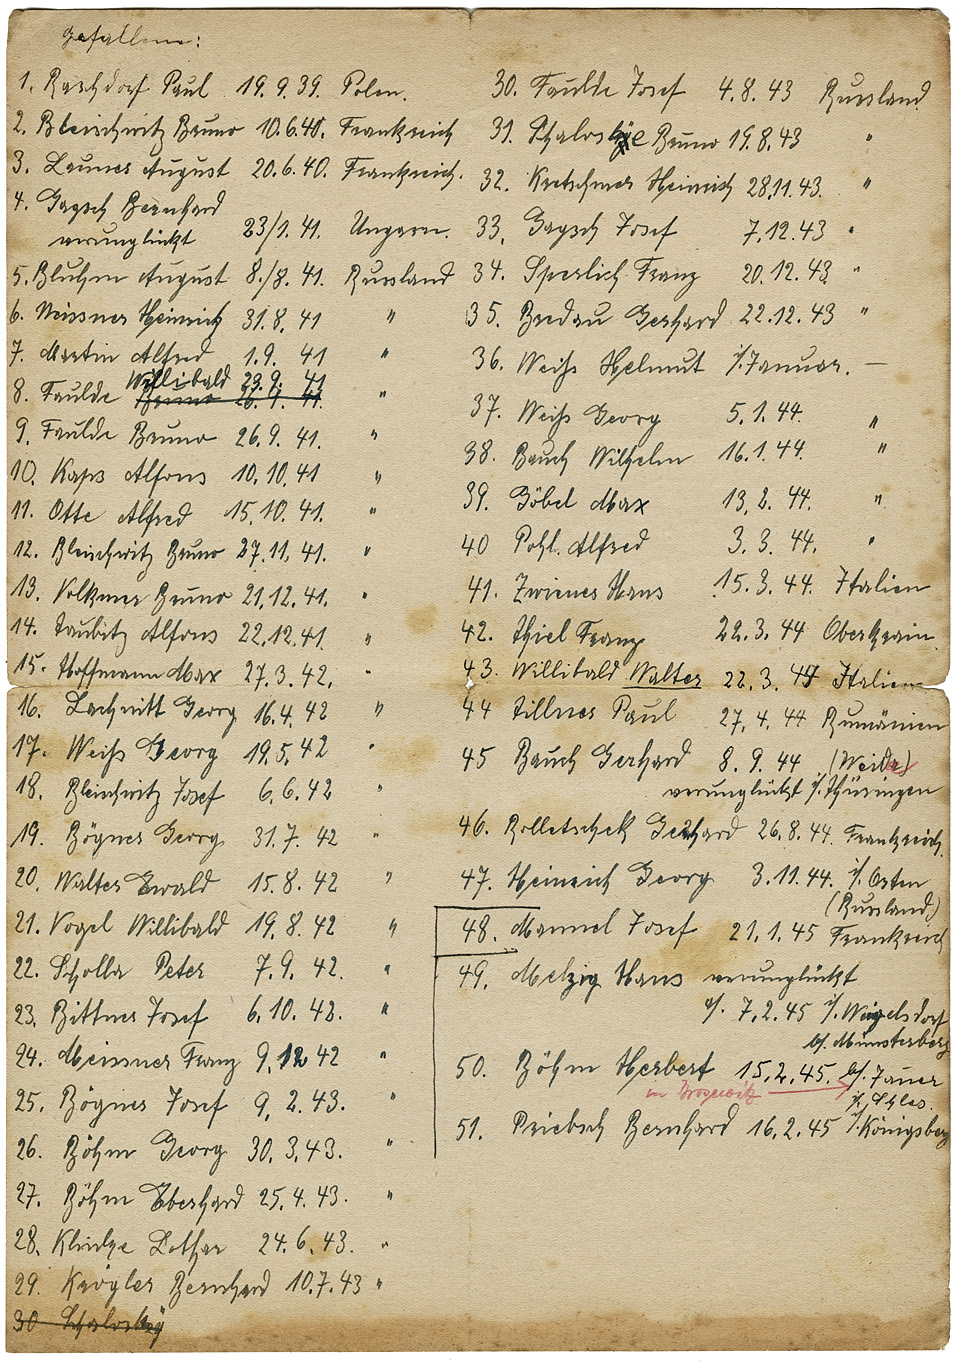 Gefallene:
1. Raschdorf Paul 19.9.39. Polen.
2. Bleischwitz Bruno 10.6.40. Frankreich
3. Launer August 20.6.40. Frankreich.
4. Gagsch Bernhard
verunglückt 23/1.41. Ungarn.
5. Bluhm August 8./8.41. Russland
6. Meissner Heinrich 31.8.41 "
7. Martin Alfred 1.9.41 "
Willibald 23.9.41
8. Faulde Bruno 26.9.41. "
9. Faulde Bruno 26.9.41. "
10. Kaps Alfons 10.10.41 "
11. Otte Alfred 15.10.41. "
12. Bleischwitz Bruno 27.11.41. "
13. Volkmer Bruno 21.12.41. "
14. Taubitz Alfons 22.12.41. "
15. Hoffmann Max 27.3.42. "
16. Lachnitt Georg 16.4.42 "
17. Weiß Georg 19.5.42 "
18. Bleischwitz Josef 6.6.42 "
19. Bögner Georg 31.7.42 "
20. Walter Ewald 15.8.42 "
21. Vogel Willibald 19.8.42 "
22. Scholla Peter 7.9.42. "
23. Bittner Josef 6.10.42. "
24. Meissner Franz 9.12.42 "
25. Bögner Josef 9.2.43. "
26. Böhm Georg 30.3.43. "
27. Böhm Eberhard 25.4.43. "
28. Lothar 24.6.43. "
29. Krögler Bernhard 10.7.43 "
30 Schalosky
30. Faulde Josef 4.8.43 Russland
31. Bruno 19.8.43 "
32. Kretschmer Heinrich 28.11.43. "
33. Gagsch Josef 7.12.43 "
34. Sperlich Franz 20.12.43. "
35. Bredau Gerhard 22.12.43 "
36. Weiß Helmut i/Januar. —
37. Weiß Georg 5.1.44. "
38. Bauch Wilhelm 16.1.44. "
39. Göbel Max 13.2.44. "
40 Pohl. Alfred 3.3.44. "
41. Zwiener Hans 15.3.44. Italien
42. Thiel Franz 22.3.44 Oberkrain.
43. Willibald Walter 22.3.44 Italien
44 Tillner Paul 27.4.44 Rumänien
45 Bauch Gerhard 8.9.44 (Weida)
verunglückt i/Thüringen
46. Rolletschek Gerhard 26.8.44. Frankreich.
47. Heinrich Georg 3.11.44. i/Osten
(Russland)
48. Mannel Josef 21.1.45 Frankreich
49. Metzig Hans verunglückt
a/. 7.2.45 i/Weigelsdorf
b/. Münsterberg
50. Böhm Herbert 15.2.45. b/. Jauer
in Brogewitz i/. Schles.
51. Priebsch Bernhard 16.2.45 i/Königsberg